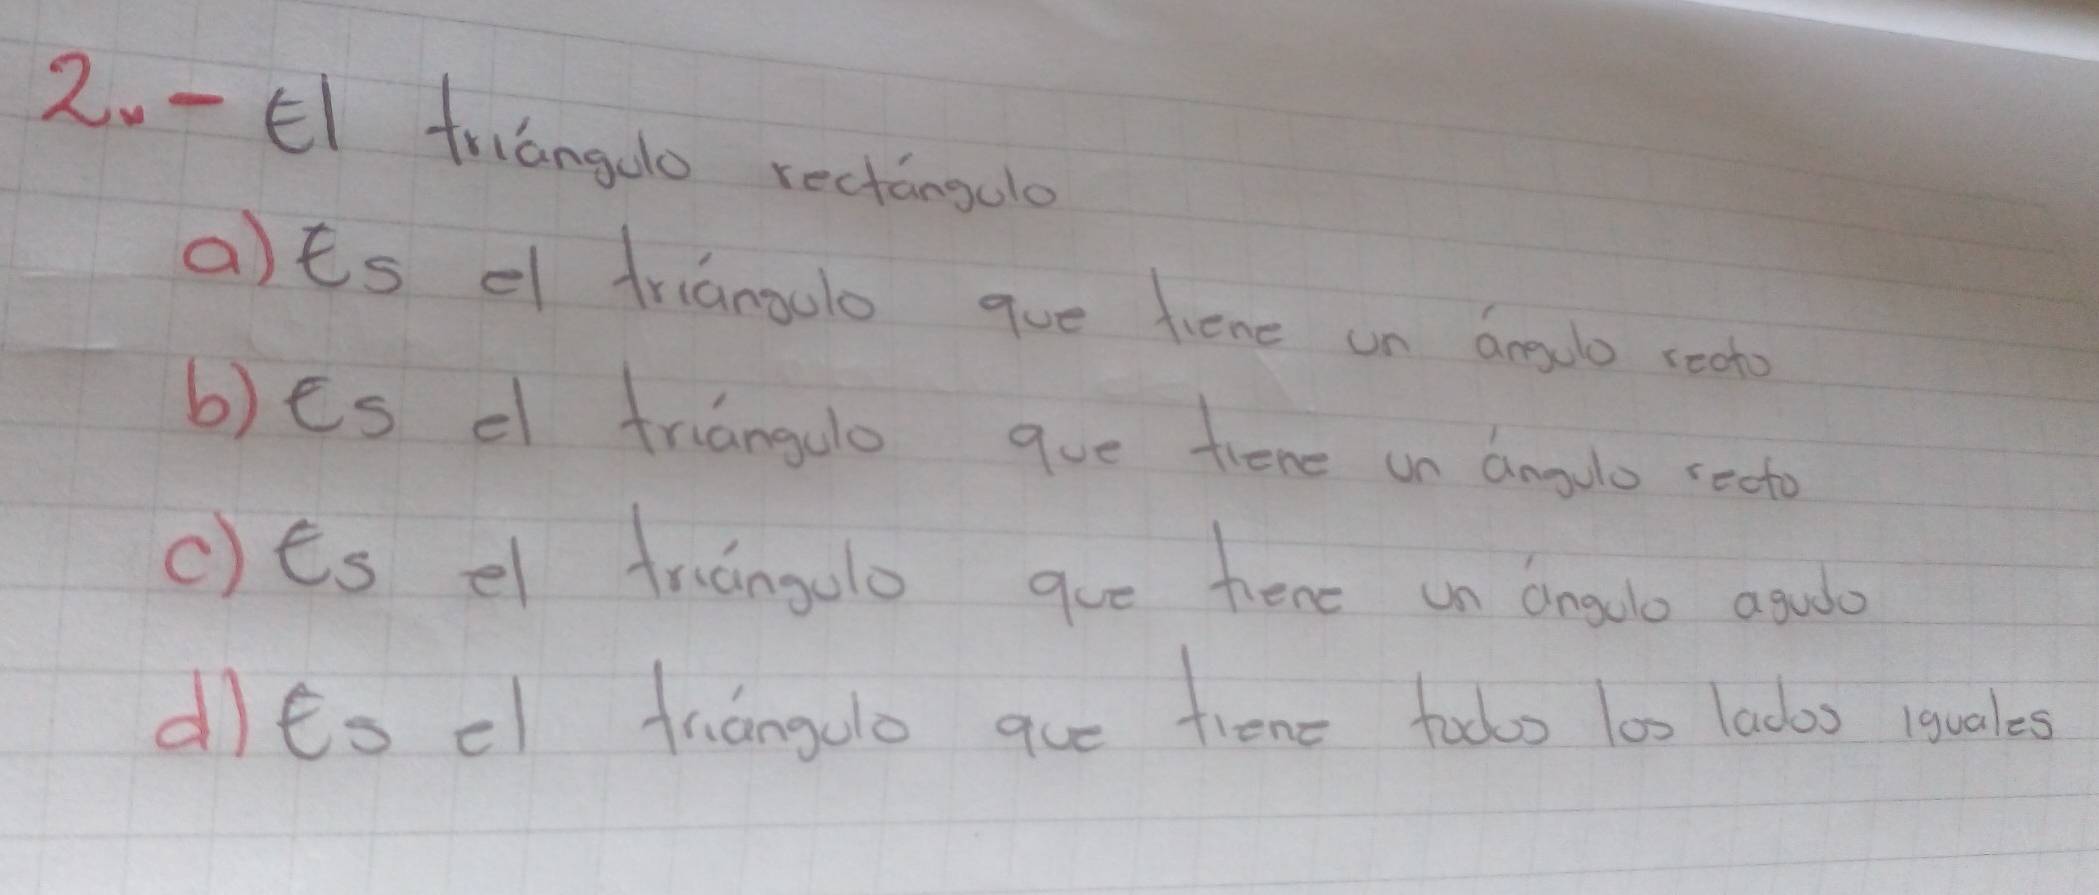 2.- El triángulo rectángulo
a) Es el triángulo que tiene un ángulo recto
b) Es el triángulo que tiene un ángulo recto
c) Es el triángulo que tiene un ángulo agudo
d) Es el triángulo que tiene todos los lados iguales